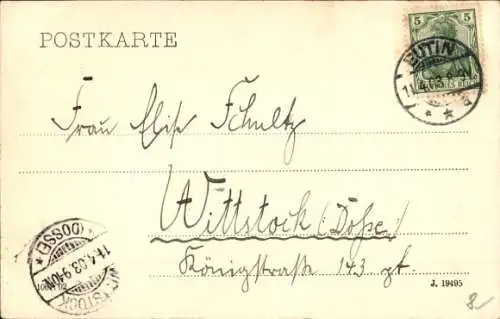 POSTKARTE
5 5
EUTIN
11.4.03
Frau Elise Schultz
Wittstock (Dosse)
Königstraße 143. pt.
(DOSSE)
11.4.03.9-10N.
WITTSTOCK
J. 19495